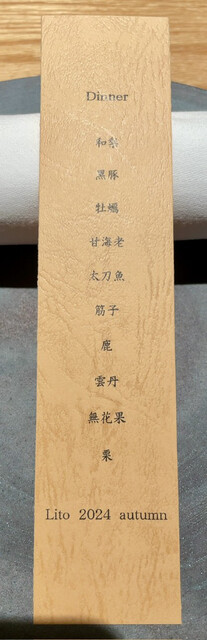 Dinner
和梨
黒豚
牡蠣
甘海老
太刀魚
筋子
鹿
雲丹
無花果
栗
Lito 2024 autumn